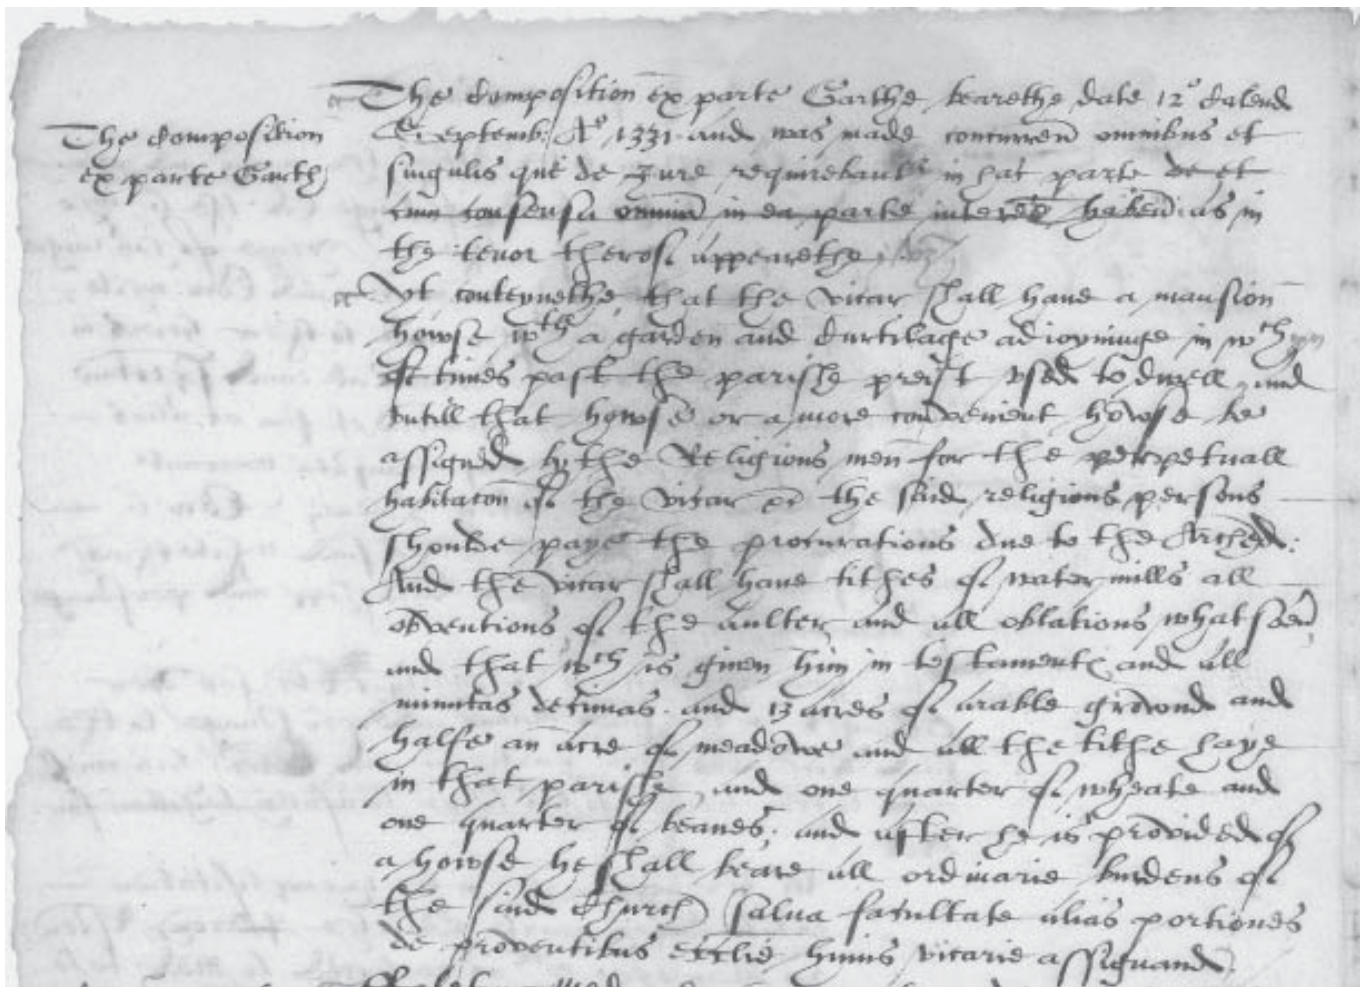 The Composition
ex parte Garth
The Composition ex parte Garthe bearethe date 12° Calend
Septemb: A° 1331 and was made concurren omnibus et
singulis que de Jure requirebantr in hac parte et
cum consensu omniu in ea parte interesse haben as in
the tenor therof appearethe
Yt conteynethe that the vicar shall have a mansion
howse wth a garden and Curtilage adioyninge in wch
of times past the parishe preist vsed to dwell and
vntill that howse or a more convenient howse be
assigned by the Religious men for the perpetuall
habitacon of the vicar the said religious persons
shoulde paye the procurations due to the Archd:
And the vicar shall have tithes of watermills all
obventions of the aulter and all oblations whatsoeu
and that wch is given him in testament and all
minutas decimas. and 13 acres of arable grownd and
halfe an acre of meadowe and all the tithe haye
in that parishe and one quarter of wheate and
one quarter of beanes. and after he is provided of
a howse he shall beare all ordinarie burdens of
the said Church salva facultate alias portiones
de proventibus ecclie huius vicarie assignand